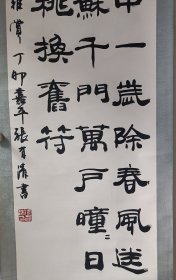 中一歲除春風送
蘇千門萬戶曈〻日
桃換舊符
雅賞丁卯嘉平張書